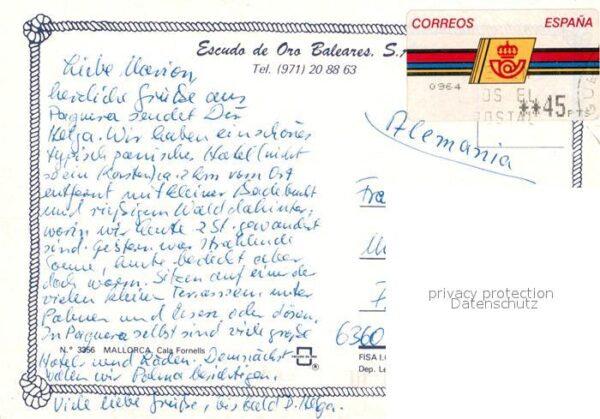 CORREOS ESPAÑA
Escudo de Oro Baleares. S.
Tel. (971) 20 88 63
0964
OS EL
POSTAL
**45 PTS
Liebe Marion
herzliche Grüße aus
Paguera sendet Dir
Helga. Wir haben ein schönes
typisch spanisches Hotel (nicht
so ein Kasten) ca. 2 km vom Ort
entfernt mit kleiner Badebucht
und riesigem Wald dahinter,
worin wir heute 2 St. gewandert
sind. Gestern war strahlende
Sonne, heute bedeckt aber
doch warm. Sitzen auf einer der
vielen kleinen Terrassen unter
Palmen und lesen oder dösen.
In Paguera selbst sind viele große
Hotels und Läden. Demnächst
wollen wir Palma besichtigen.
Viele liebe Grüße, bis bald D. Helga.
Alemania
Fra
6360
privacy protection
Datenschutz
N.º 3356 MALLORCA. Cala Fornells
FISA I.G
Dep. Le